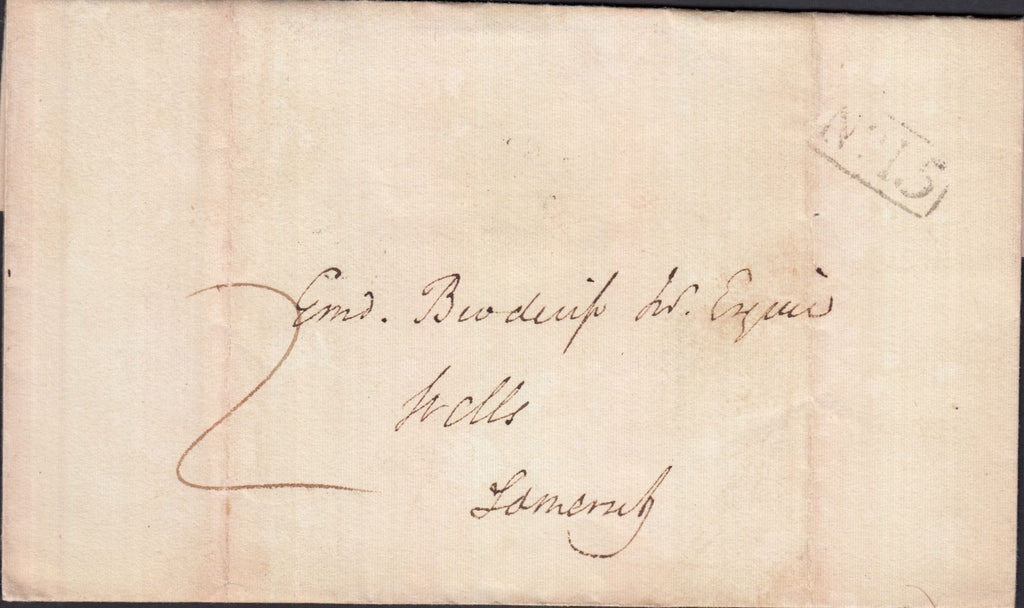 No. 15
Emd. Broderip Jr. Esquire
2
Wells
Somerset